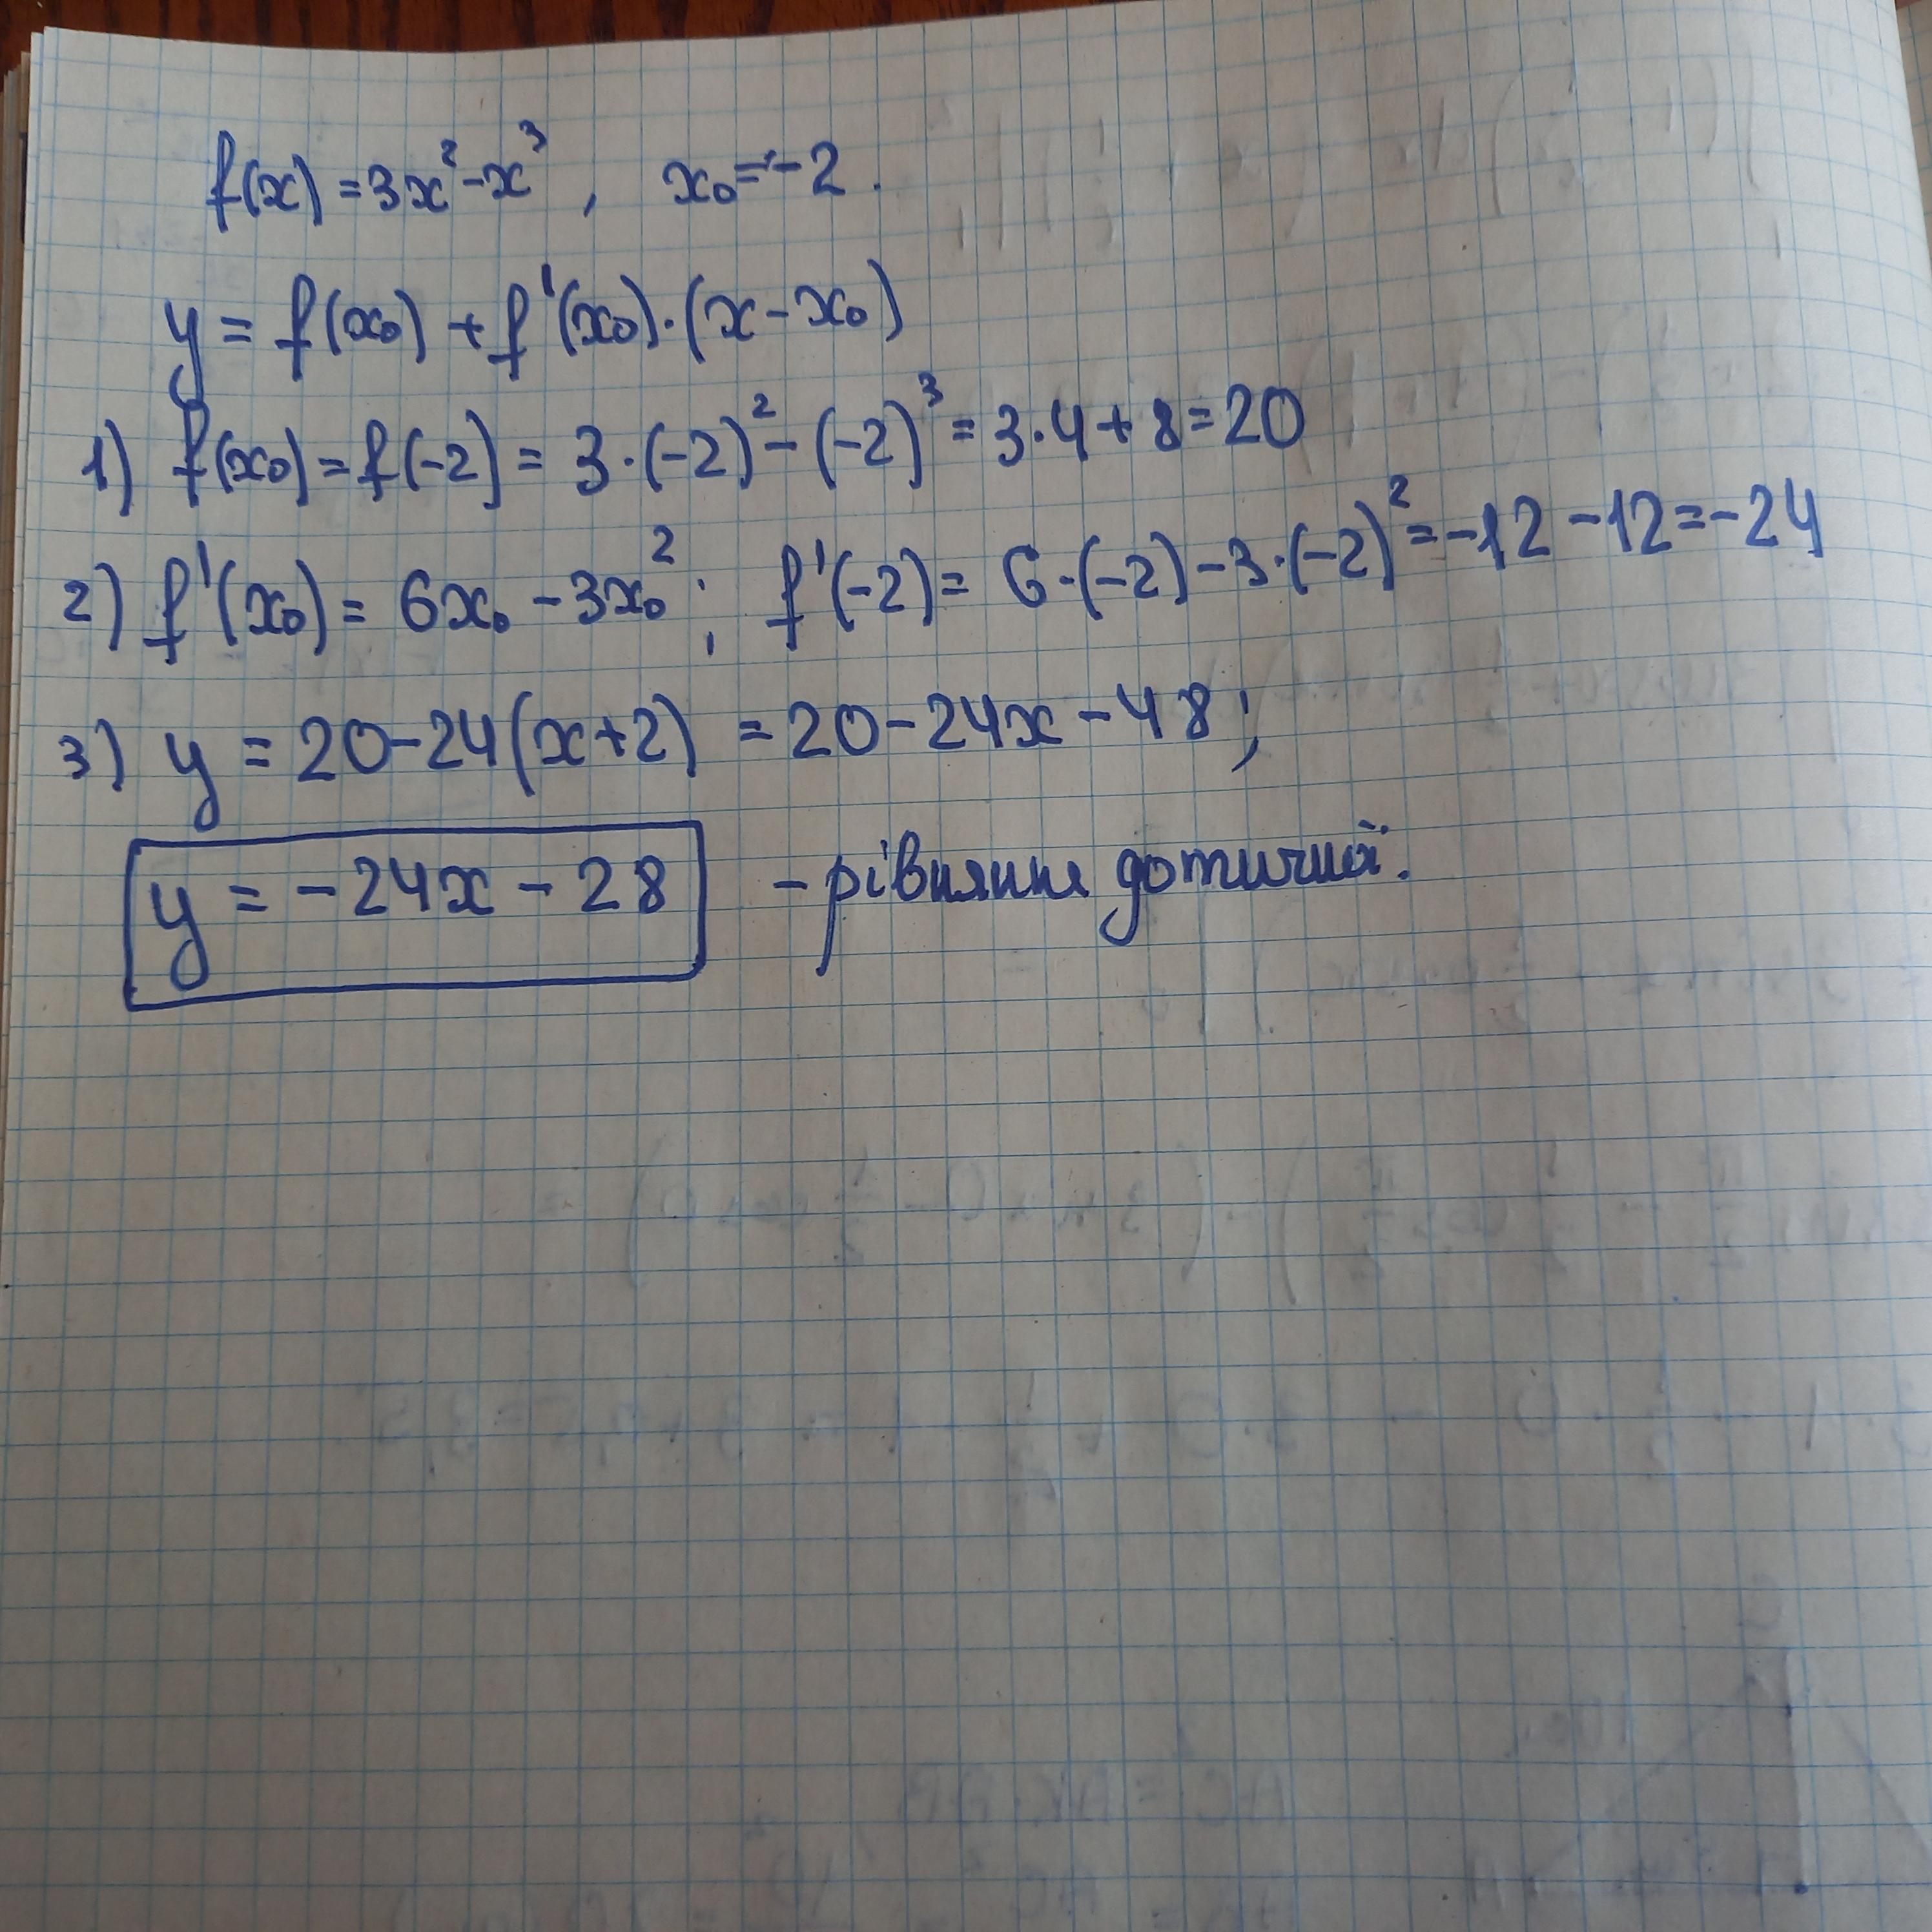 f(x) = 3x² - x³ , x₀ = -2 .
y = f(x₀) + f'(x₀) · (x - x₀)
1) f(x₀) = f(-2) = 3 · (-2)² - (-2)³ = 3 · 4 + 8 = 20
2) f'(x₀) = 6x₀ - 3x₀² ; f'(-2) = 6 · (-2) - 3 · (-2)² = -12 - 12 = -24
3) y = 20 - 24(x+2) = 20 - 24x - 48 ;
y = -24x - 28 - рівняння дотичної.